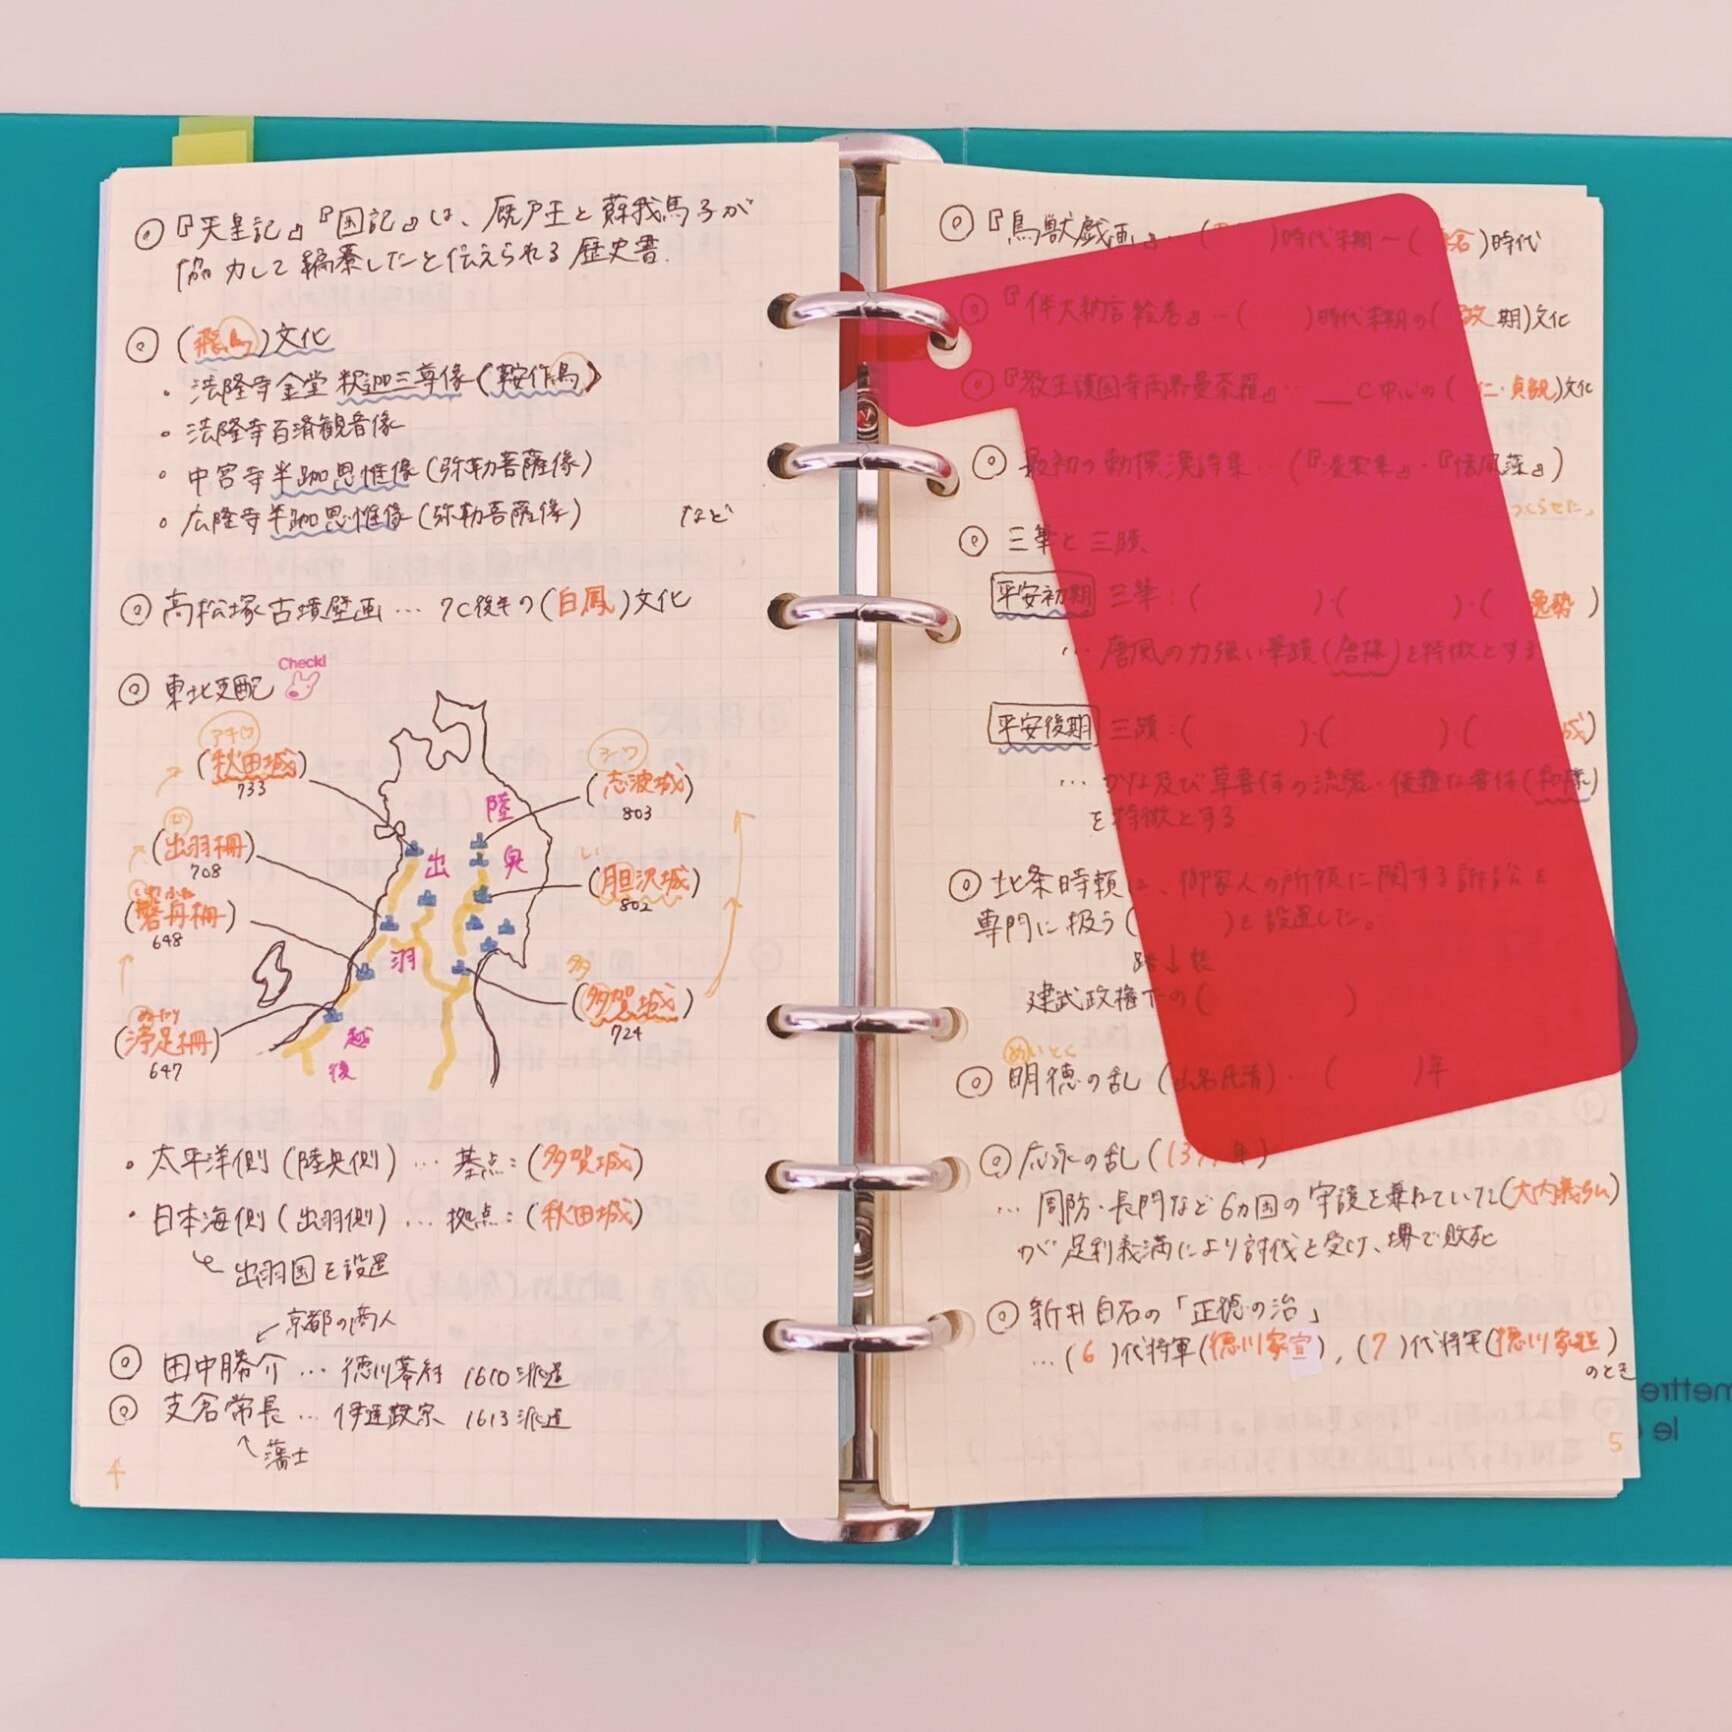 ◎『天皇記』『国記』は、厩戸王と蘇我馬子が
協力して編纂したと伝えられる歴史書.
◎(飛鳥)文化
・法隆寺金堂釈迦三尊像(鞍作鳥)
・法隆寺百済観音像
・中宮寺半跏思惟像(弥勒菩薩像)
・広隆寺半跏思惟像(弥勒菩薩像) など
◎高松塚古墳壁画…7C後半の(白鳳)文化
◎東北支配
Check!
アキ
(秋田城)
733
(出羽柵)
708
いわふね
(磐舟柵)
648
ぬたり
(渟足柵)
647
シワ
(志波城)
803
い
(胆沢城)
802
多
(多賀城)
724
陸
奥
出
羽
越
後
・太平洋側(陸奥側)…基点:(多賀城)
・日本海側(出羽側)…拠点:(秋田城)
出羽国を設置
京都の商人
◎田中勝介…徳川幕府 1610派遣
◎支倉常長…伊達政宗 1613派遣
藩士
4
◎『鳥獣戯画』…( )時代末期〜( 倉)時代
◎『伴大納言絵巻』…( )時代末期の( 政期)文化
◎『教王護国寺両界曼荼羅』…__C中心の( 仁・貞観)文化
◎最初の勅撰漢詩集…(『凌雲集』・『懐風藻』)
つくらせた」
◎三筆と三蹟
平安初期 三筆:( )・( )・( 逸勢)
…唐風の力強い筆蹟(唐様)を特徴とする
平安後期 三蹟:( )・( )・( 成)
…かな及び草書体の流麗・優雅な書体(和様)
を特徴とする
◎北条時頼は、御家人の所領に関する訴訟を
専門に扱う( )を設置した。
踏↓襲
建武政権下の( )
めいとく
◎明徳の乱(山名氏清)…( )年
◎応永の乱(139 年)
…周防・長門など6ヵ国の守護を兼ねていた(大内義弘)
が足利義満により討伐を受け、堺で敗死
◎新井白石の「正徳の治」
…(6)代将軍(徳川家宣), (7)代将軍(徳川家継)
のとき
5
mettre
le